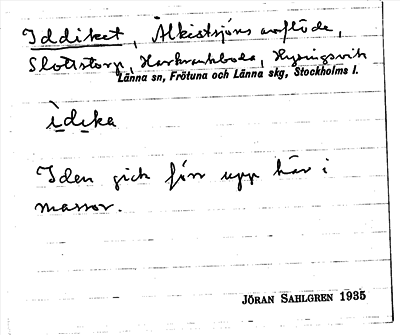 Iddiket, Älkistsjöns avflöde,
Slottstorp, Harkrankboda, Hyvingsvik
Länna sn, Frötuna och Länna skg, Stockholms l.
ìdika
Iden gick förr upp här i
massor.
JÖRAN SAHLGREN 1935